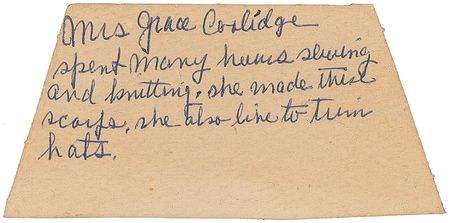 Mrs Grace Coolidge
spent many hours sewing
and knitting. she made these
scarfs. she also like to trim
hats.